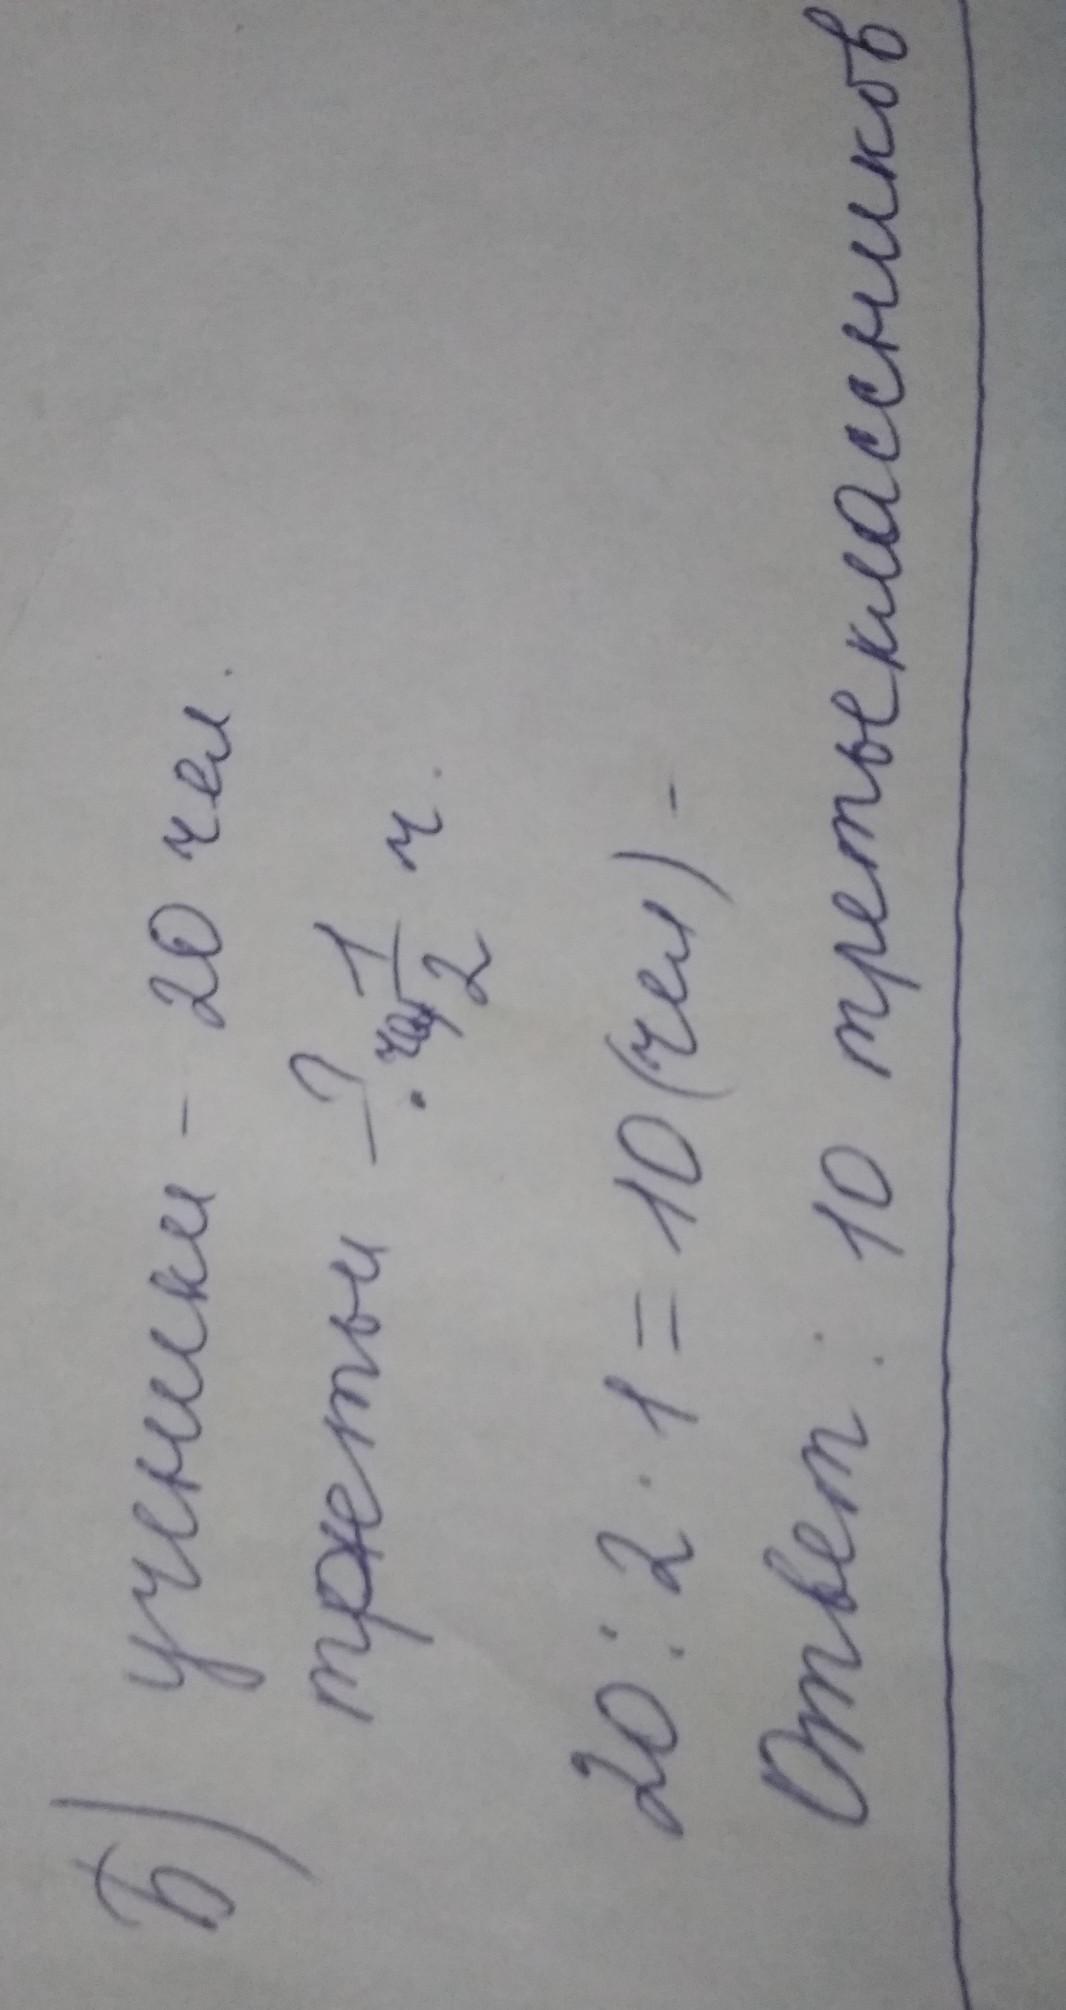 Б) ученики - 20 чел.
третьи - ? 1/2 ч.
20 : 2 · 1 = 10 (чел) -
Ответ : 10 третьеклассников